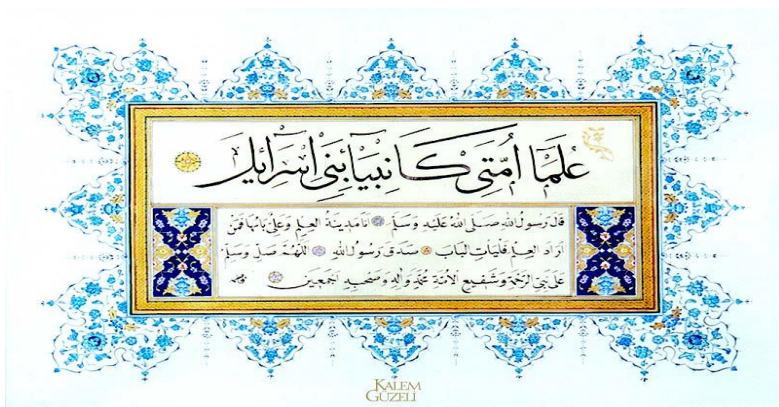 علما امتى كانبيا بنى اسرايل
قال رسول الله صلى الله عليه وسلم انا مدينة العلم وعلى بابها فمن
اراد العلم فليأت الباب صدق رسول الله اللهم صل وسلم
على نبى الرحمة وشفيع الامة محمد واله وصحبه اجمعين
KALEM
GÜZELİ